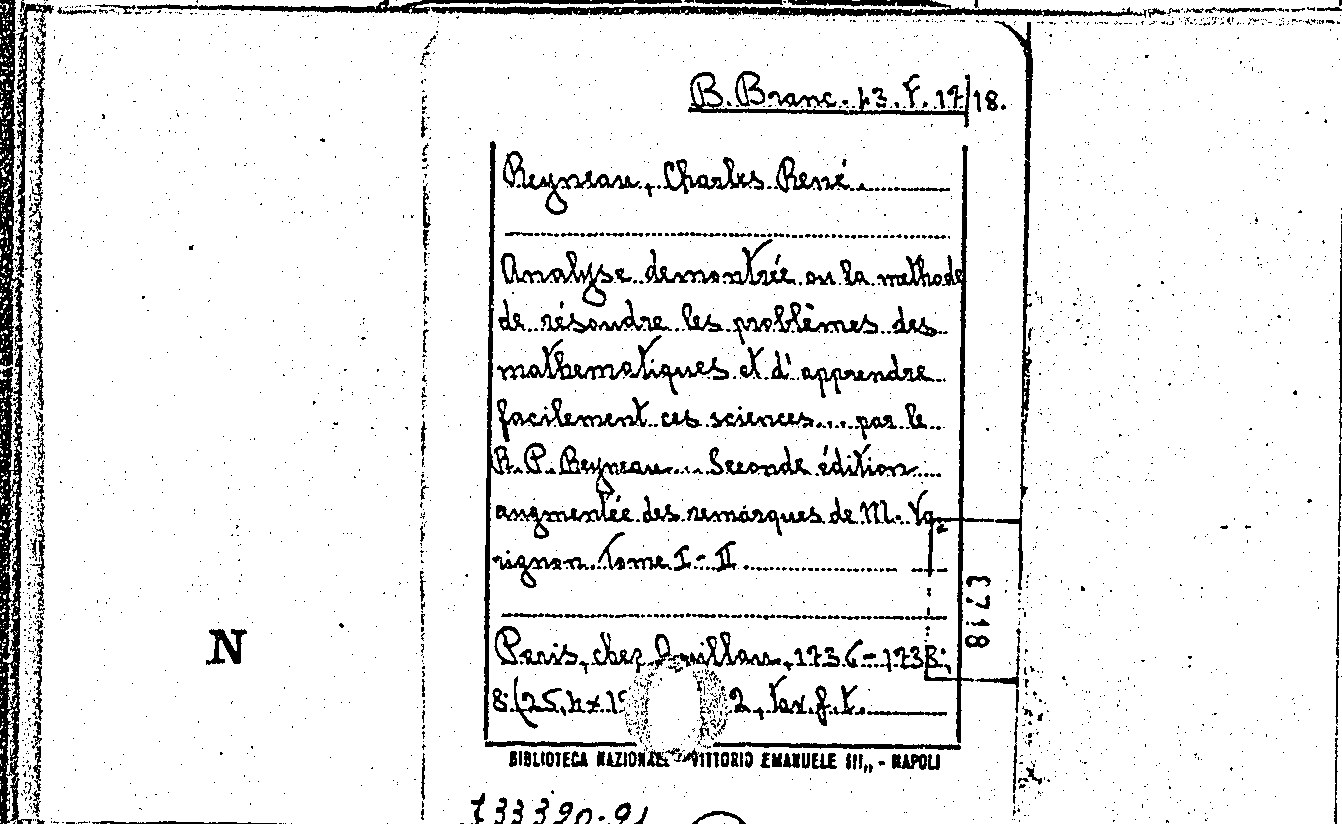 B. Branc. 13. F. 17/18.
Reyneau, Charles René.
Analyse demontrée ou la methode
de résoudre les problèmes des
mathematiques et d'apprendre
facilement ces sciences... par le
R. P. Reyneau... Seconde édition
augmentée des remarques de M. Va-
rignon. Tome I-II
N
E718
Paris, chez Quillau, 1736-1738;
8.(25,4x1 2, tav. f. t.
BIBLIOTECA NAZIONALE VITTORIO EMANUELE III„ - NAPOLI
733390-91